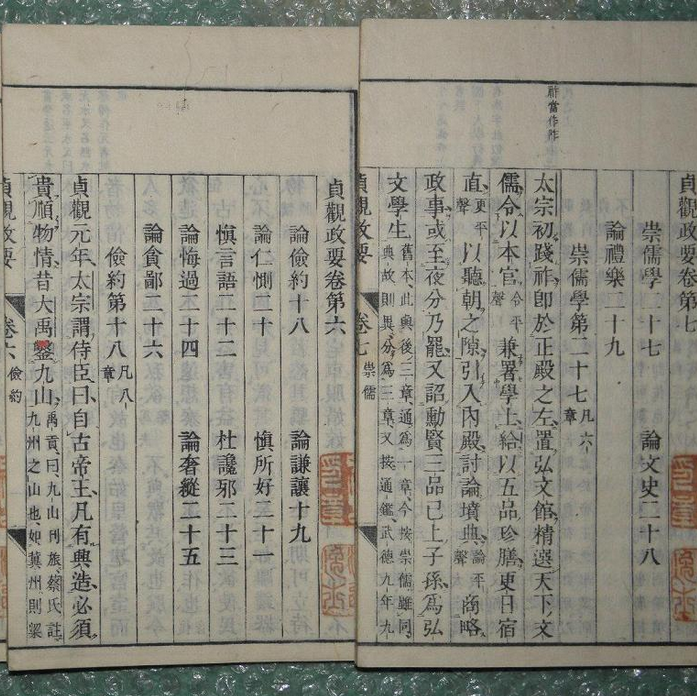 貞觀政要卷第七
崇儒學二十七 論文史二十八
論禮樂二十九
崇儒學第二十七 凡六章
太宗初踐祚卽於正殿之左置弘文館精選天下文
儒令以本官 令平聲 兼署學士給以五品珍膳更日宿
直 更平聲 以聽朝之隙引入內殿討論墳典 論平聲 商略
政事或至夜分乃罷又詔勳賢三品已上子孫爲弘
文學生 舊本此與後三章通爲一章今按崇儒雖同
典故則異分爲三章又按通鑑武德九年九
貞觀政要 卷七 崇儒
祚當作阼
貞觀政要卷第六
論儉約十八 論謙讓十九
論仁惻二十 愼所好二十一
愼言語二十二 杜讒邪二十三
論悔過二十四 論奢縱二十五
論貪鄙二十六
儉約第十八 凡八章
貞觀元年太宗謂侍臣曰自古帝王凡有興造必須
貴順物情昔大禹鑿九山 禹貢曰九山刊旅蔡氏註
九州之山也如冀州則梁
貞觀政要 卷六 儉約